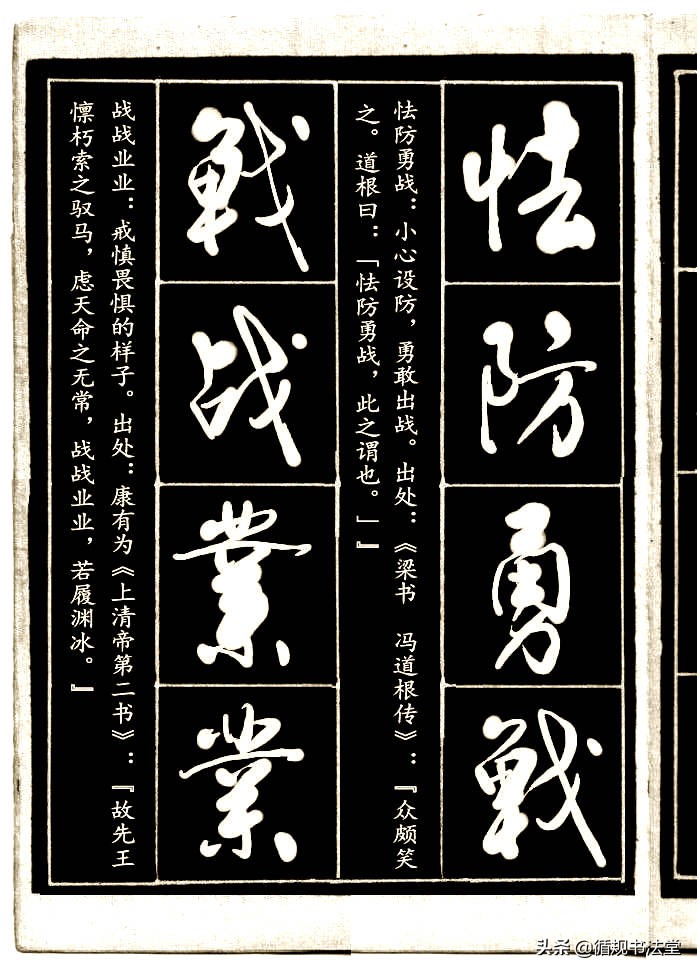 怯防勇戰
怯防勇战：小心设防，勇敢出战。出处：《梁书 冯道根传》：『众颇笑
之。道根曰：「怯防勇战，此之谓也。」』
戰战業業
战战业业：戒慎畏惧的样子。出处：康有为《上清帝第二书》：『故先王
懔朽索之驭马，虑天命之无常，战战业业，若履渊冰。』
头条 @循规书法堂